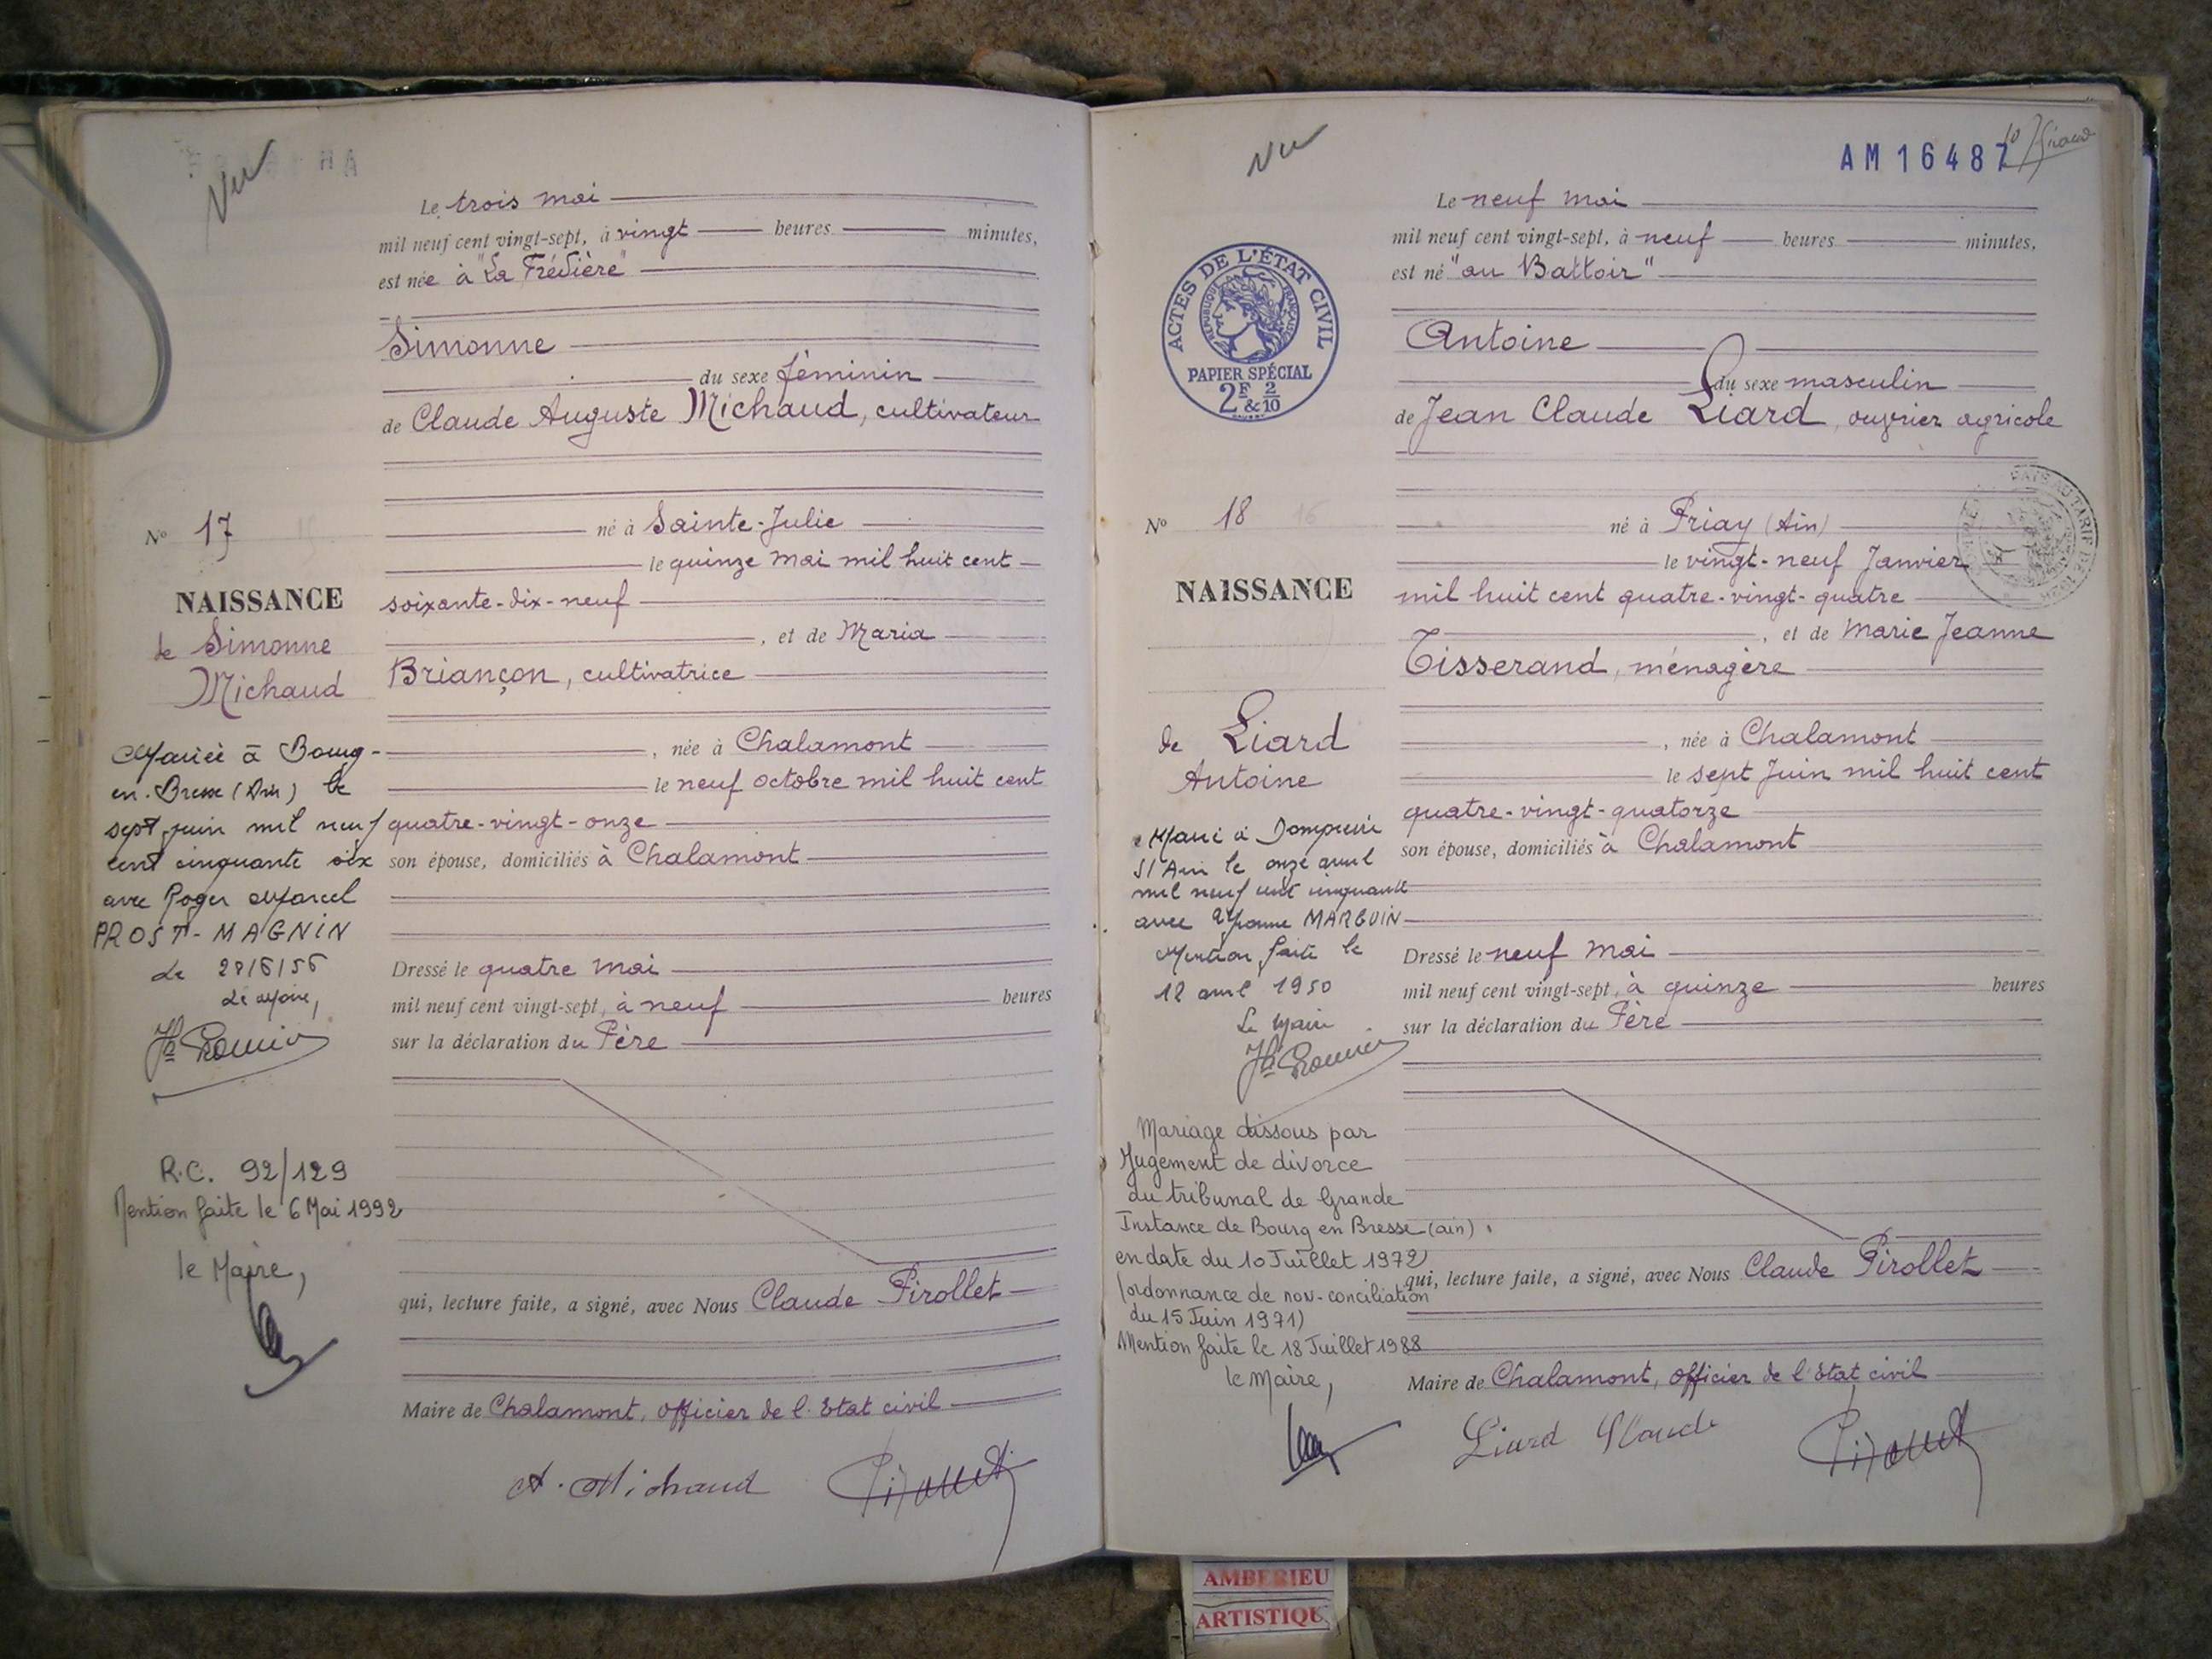 Vu
Le trois mai
mil neuf cent vingt-sept, à vingt heures minutes,
est née à "La Frédière"
Simonne
du sexe féminin
de Claude Auguste Michaud, cultivateur
né à Sainte-Julie
le quinze mai mil huit cent
soixante-dix-neuf
, et de Maria
Briançon, cultivatrice
, née à Chalamont
le neuf octobre mil huit cent
quatre-vingt-onze
son épouse, domiciliés à Chalamont
Dressé le quatre mai
mil neuf cent vingt-sept, à neuf heures
sur la déclaration du Père
qui, lecture faite, a signé, avec Nous Claude Pirollet
Maire de Chalamont, officier de l'Etat civil
A. Michaud
No 17
NAISSANCE
de Simonne
Michaud
Mariée à Bourg-
en-Bresse (Ain) le
sept juin mil neuf
cent cinquante six
avec Roger Marcel
PROST-MAGNIN
Le Maire,
R.C. 92/129
Mention faite le 6 Mai 1992
le Maire,
Vu
AM 16487
Le neuf mai
mil neuf cent vingt-sept, à neuf heures minutes,
est né "au Battoir"
Antoine
du sexe masculin
de Jean Claude Liard, ouvrier agricole
né à Priay (Ain)
le vingt-neuf Janvier
mil huit cent quatre-vingt-quatre
, et de Marie Jeanne
Tisserand, ménagère
, née à Chalamont
le sept Juin mil huit cent
quatre-vingt-quatorze
son épouse, domiciliés à Chalamont
Dressé le neuf mai
mil neuf cent vingt-sept, à quinze heures
sur la déclaration du Père
qui, lecture faite, a signé, avec Nous Claude Pirollet
Maire de Chalamont, officier de l'Etat civil
Liard Claude
ACTES DE L'ÉTAT CIVIL
RÉPUBLIQUE FRANÇAISE
PAPIER SPÉCIAL
2F & 2/10
No 18
NAISSANCE
de Liard
Antoine
Marié à Dompierre
s/ Ain le onze avril
mil neuf cent cinquante
avec Yvonne MARGUIN
Mention faite le
12 avril 1950
Le Maire
Mariage dissous par
Jugement de divorce
du tribunal de Grande
Instance de Bourg en Bresse (ain)
en date du 10 Juillet 1972
(ordonnance de non-conciliation
du 15 Juin 1971)
Mention faite le 18 Juillet 1988
le Maire,
AMBERIEU
ARTISTIQU